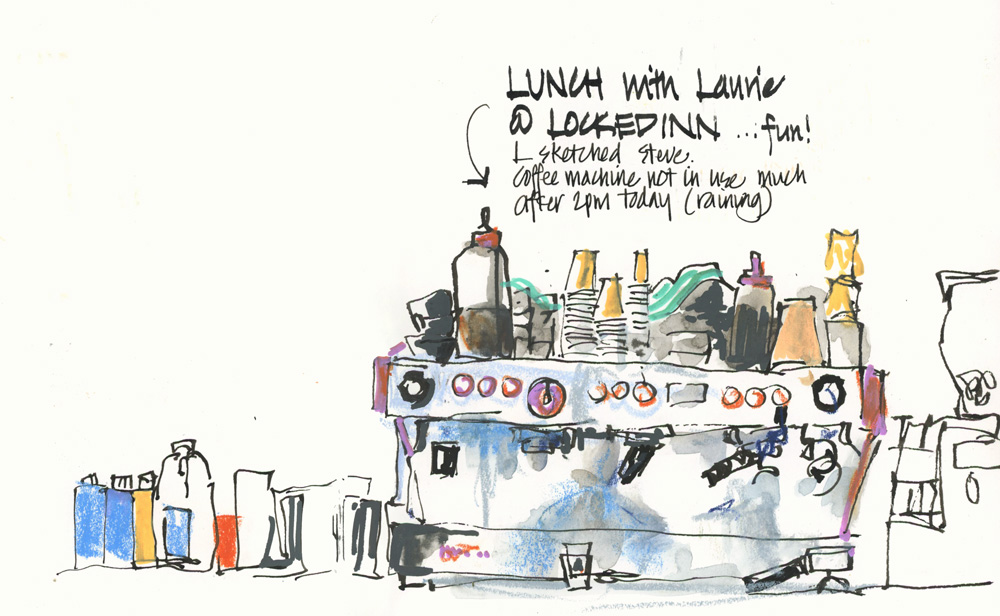 LUNCH with Laurie
@ LOCKEDINN ...fun!
L sketched Steve.
Coffee machine not in use much
after 2pm today (raining)